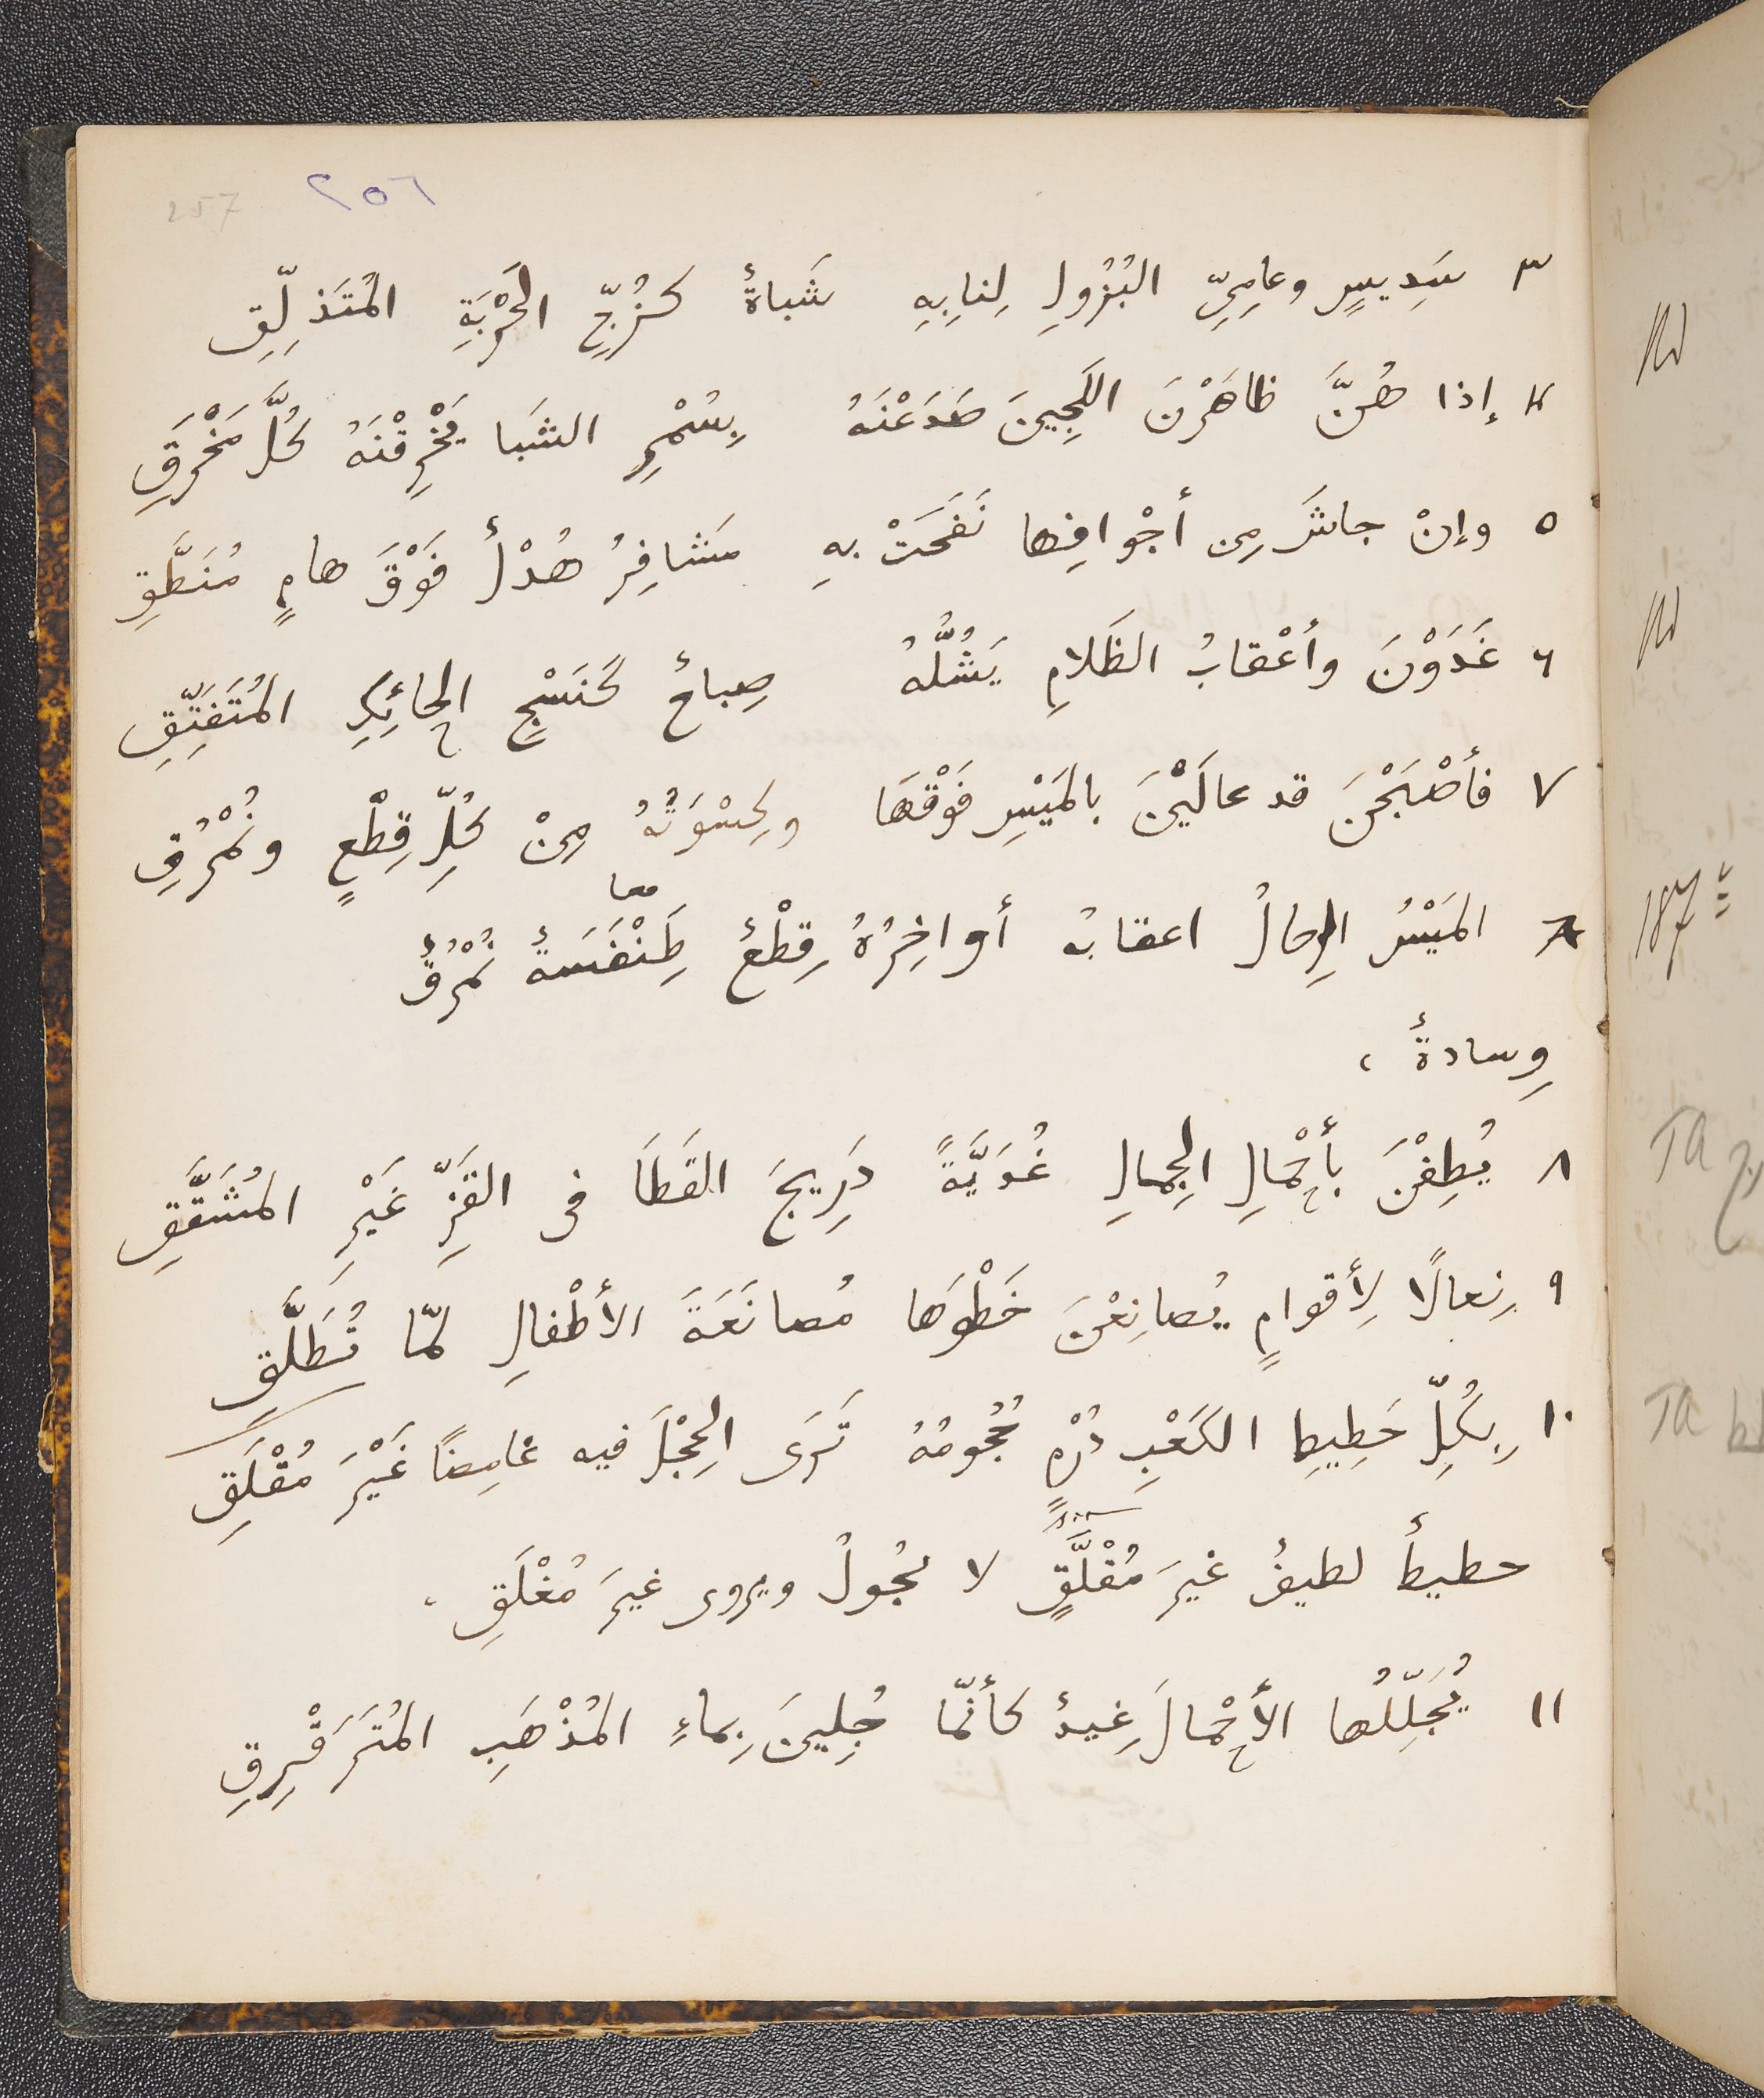 257 ٢٥٦
٣ سَدِيسٍ وعامِيِّ البُزُولِ لِنابِهِ شَباةٌ كَزُجِّ الحَرْبَةِ المُتَذَلِّقِ
٤ إذا هُنَّ ظاهَرْنَ اللَجِينَ صَدَعْنَهُ بِسُمْرِ الشَبا يَخْرِقْنَهُ كُلَّ مَخْرَقِ
٥ وإنْ جاشَ مِن أجْوافِها نَفَحَتْ بهِ مَشافِرُ هُدْلٌ فَوْقَ هامٍ مُنَطَّقِ
٦ غَدَوْنَ وأعْقابُ الظَلامِ يَشُلُّهُ صِباحٌ كَنَسْجِ الحائِكِ المُتَفَتِّقِ
٧ فأصْبَحْنَ قد عالَيْنَ بالمَيْسِ فَوْقَها وكِسْوَتُهُ مِنْ كُلِّ قِطْعٍ ونُمْرُقِ
معا
المَيْسُ الرِحالُ اعقابُه أواخِرُهُ قِطْعٌ طِنْفَسَةٌ نُمْرُقٌ
وِسادةٌ ،
٨ يُطِفْنَ بأحْمالِ الجِمالِ غُدَيَّةً دَرِيجَ القَطَا فى القَزِّ غَيْرِ المُشَقَّقِ
٩ نِعالًا لِأقوامٍ يُصانِعْنَ خَطْوَها مُصانَعَةَ الأطْفالِ لمّا تُطَلَّقِ
١٠ بِكُلِّ حَطِيطِ الكَعْبِ دُرْمٍ حُجُومُهُ تَرَى الحِجْلَ فيه غامِضًا غَيْرَ مُقْلَقِ
حطيطٌ لطيفٌ غيرَ مُقْلَقٍ لا يجُولُ ويروى غيرَ مُغْلَقِ ،
١١ يُجَلِّلُها الأحْمالَ غِيدٌ كأنّما جُلِينَ بِماءِ المُذْهَبِ المُتَرَقْرِقِ
187
TA
TA